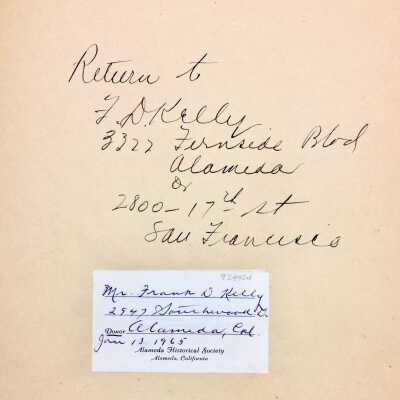 Return to
F. D. Kelly
3327 Fernside Blvd
Alameda
Or
2800 - 17th St
San Francisco
Mr. Frank D Kelly
2947 Southwood Dr.
Donor Alameda, Cal.
Jan 13 1965
Alameda Historical Society
Alameda, California